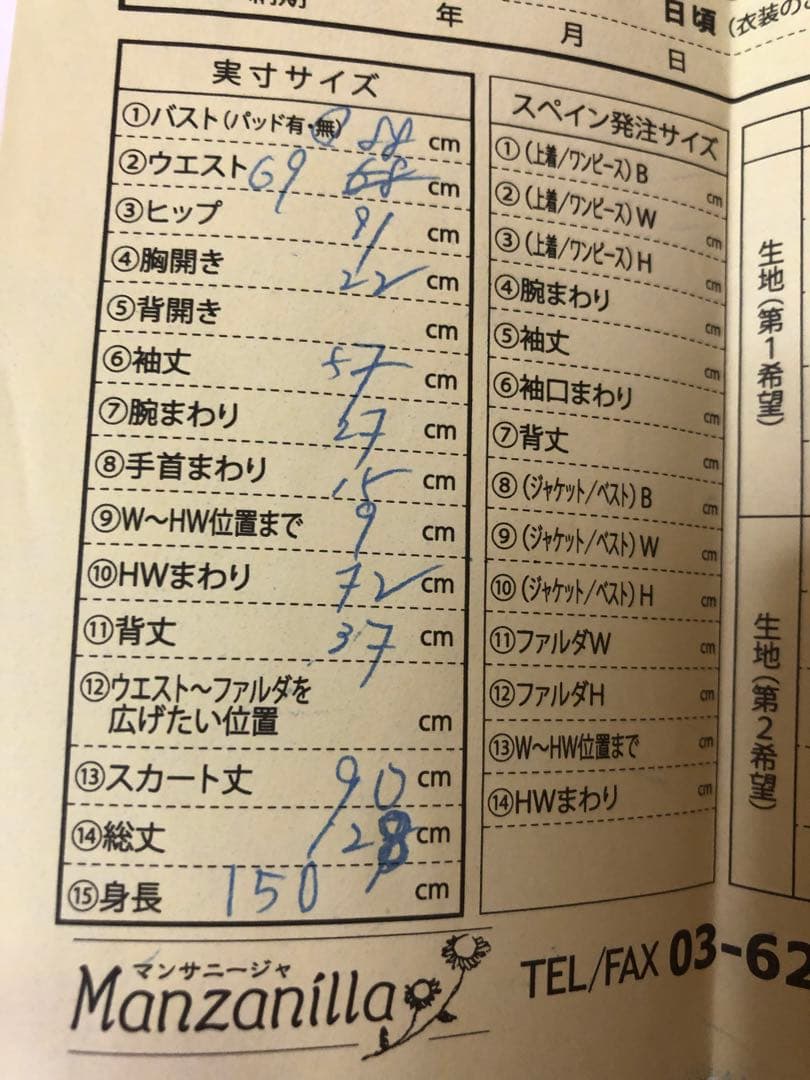 年 月 日
日頃(衣装の
実寸サイズ
①バスト(パッド有・無) 88 cm
②ウエスト 69 68 cm
③ヒップ 91 cm
④胸開き 22 cm
⑤背開き cm
⑥袖丈 57 cm
⑦腕まわり 27 cm
⑧手首まわり 15 cm
⑨W〜HW位置まで 9 cm
⑩HWまわり 72 cm
⑪背丈 37 cm
⑫ウエスト〜ファルダを
広げたい位置 cm
⑬スカート丈 90 cm
⑭総丈 128 cm
⑮身長 150 cm
スペイン発注サイズ
①(上着/ワンピース)B cm
②(上着/ワンピース)W cm
③(上着/ワンピース)H cm
④腕まわり cm
⑤袖丈 cm
⑥袖口まわり cm
⑦背丈 cm
⑧(ジャケット/ベスト)B cm
⑨(ジャケット/ベスト)W cm
⑩(ジャケット/ベスト)H cm
⑪ファルダW cm
⑫ファルダH cm
⑬W〜HW位置まで cm
⑭HWまわり cm
生地(第1希望)
生地(第2希望)
マンサニージャ
Manzanilla
TEL/FAX 03-62